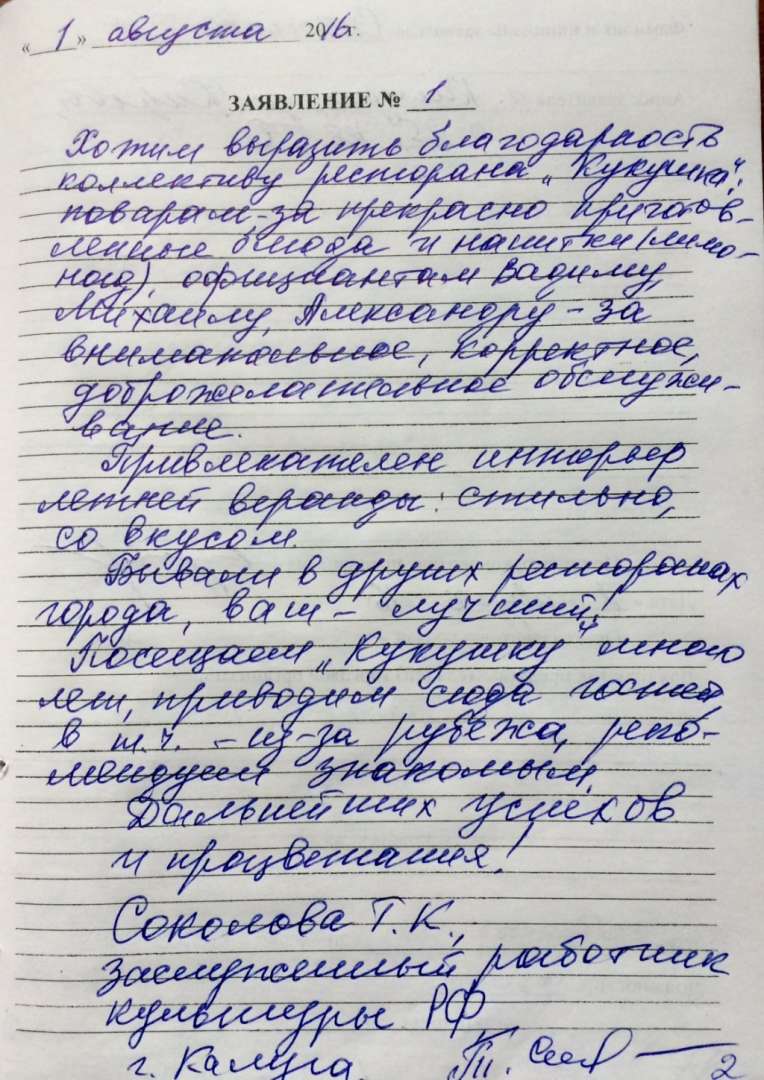 « 1 » августа 2016 г.
ЗАЯВЛЕНИЕ № 1
Хотим выразить благодарность
коллективу ресторана „Кукушка“:
поварам-за прекрасно приготов-
ленные блюда и напитки (лимо-
над), официантам Вадиму,
Михаилу, Александру – за
внимательное, корректное,
доброжелательное обслужи-
вание.
Привлекателен интерьер
летней веранды: стильно,
со вкусом.
Бывали в других ресторанах
города, ваш – лучший!
Посещаем „Кукушку“ много
лет, приводим сюда гостей,
в т.ч. – из-за рубежа, реко-
мендуем знакомым.
Дальнейших успехов
и процветания!
Соколова Т.К.,
заслуженный работник
культуры РФ
г. Калуга.
2